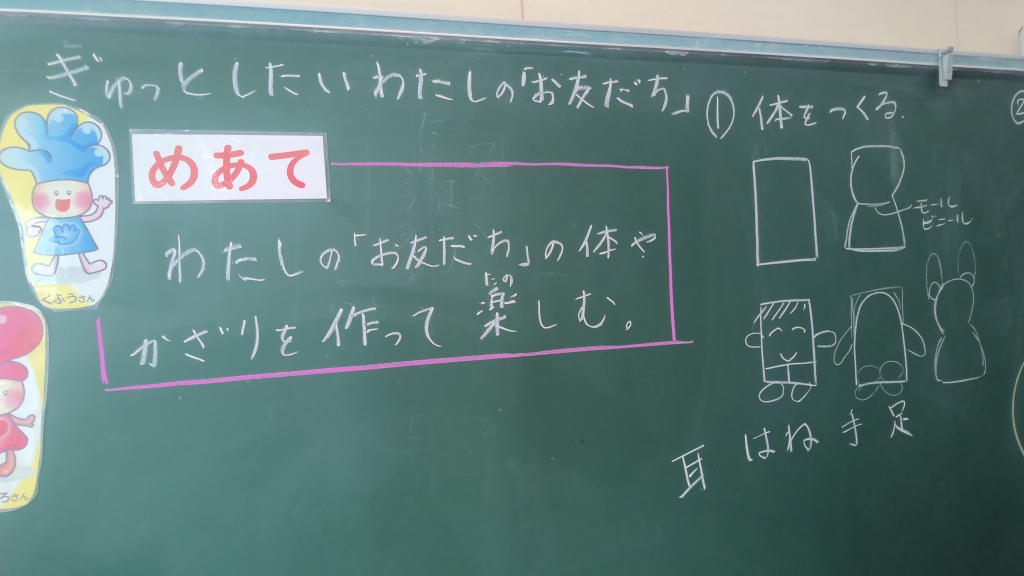 ぎゅっとしたいわたしの「お友だち」
めあて
わたしの「お友だち」の体や
たの
かざりを作って楽しむ。
くふうさん
ろさん
① 体をつくる.
モール
ビニール
耳 はね 手 足
②